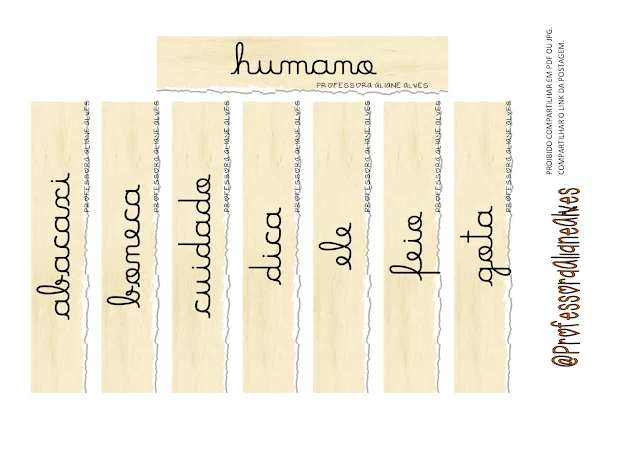 humano
PROFESSORA ALIANE ALVES
abacaxi
PROFESSORA ALIANE ALVES
boneca
PROFESSORA ALIANE ALVES
cuidado
PROFESSORA ALIANE ALVES
dica
PROFESSORA ALIANE ALVES
ele
PROFESSORA ALIANE ALVES
feio
PROFESSORA ALIANE ALVES
gota
PROFESSORA ALIANE ALVES
PROIBIDO COMPARTILHAR EM PDF OU JPG.
COMPARTILHAR O LINK DA POSTAGEM.
@ProfessoraAlianeAlves